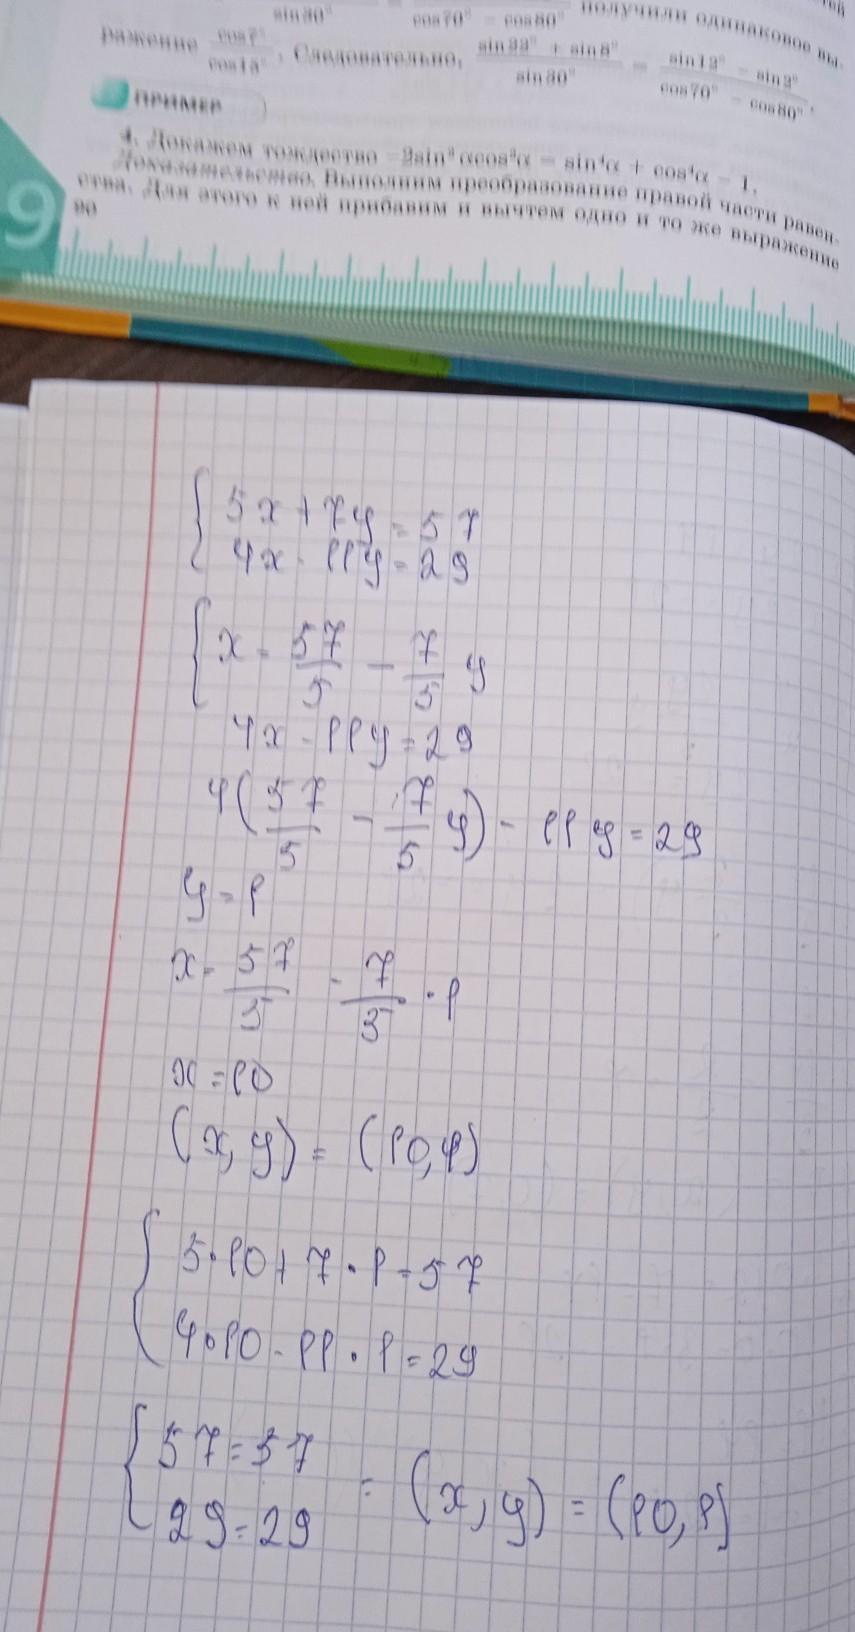 sin30° = cos70° − cos80° получили одинаковое вы-
ражение cos7°/cos15°. Следовательно, (sin22° + sin8°)/sin30° = (sin12° − sin2°)/(cos70° − cos80°).
ПРИМЕР
4. Докажем тождество −2sin²αcos²α = sin⁴α + cos⁴α − 1.
Доказательство. Выполним преобразование правой части равен-
ства. Для этого к ней прибавим и вычтем одно и то же выражение
90
9
{ 5x + 7y = 57
4x - 11y = 29
{ x = 57/5 − 7/5 y
4x - 11y = 29
4(57/5 − 7/5 y) - 11y = 29
y = 1
x = 57/5 - 7/5 · 1
x = 10
(x, y) = (10, 1)
{ 5·10 + 7·1 = 57
4·10 - 11·1 = 29
{ 57 = 57
29 = 29 = (x, y) = (10, 1)